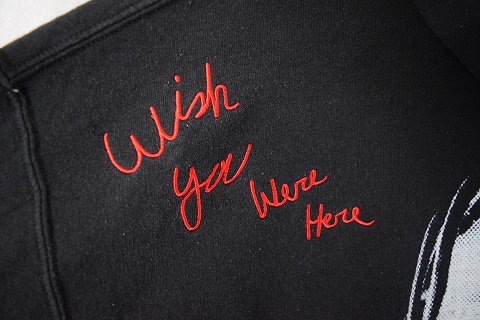 Wish
you
Were
Here